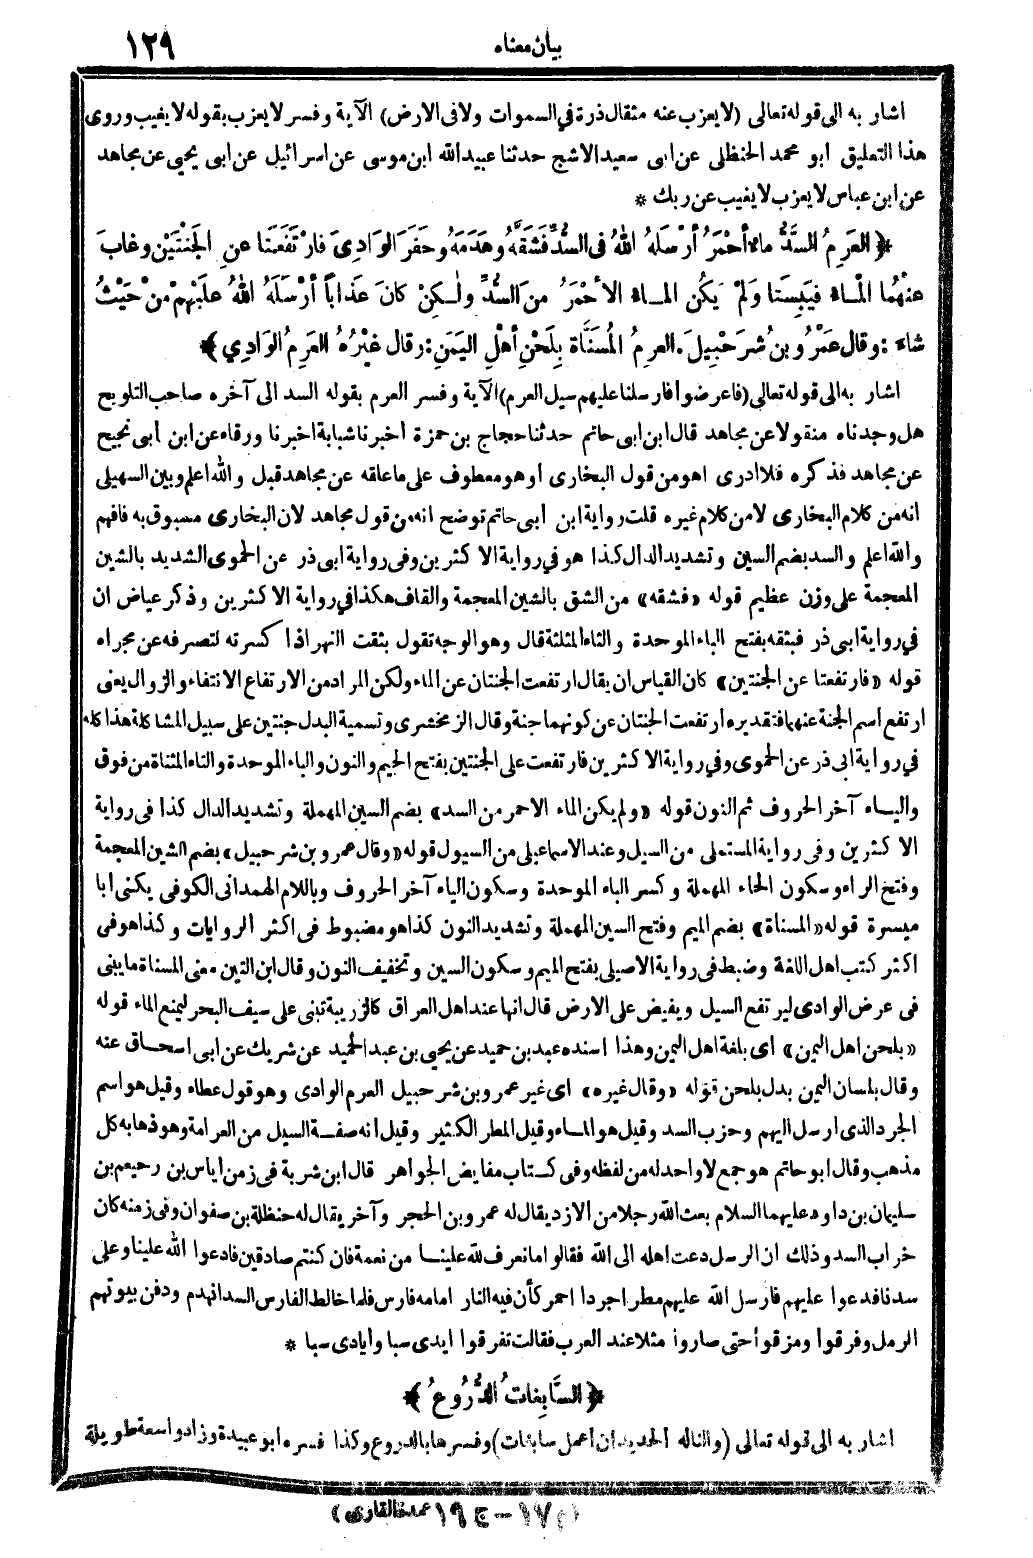 بيان معناه
١٢٩
اشار به الى قوله تعالى (لا يعزب عنه مثقال ذرة في السموات ولا فى الارض) الآية وفسر لا يعزب بقوله لا يغيب وروى
هذا التعليق ابو محمد الحنظلى عن ابى سعيد الاشج حدثنا عبيد الله ابن موسى عن اسرائيل عن ابى يحيى عن مجاهد
عن ابن عباس لا يعزب لا يغيب عن ربك *
﴿ العَرِمُ السَّدُّ ماءٌ أحْمَرُ أرْسَلَهُ اللهُ فى السُّدِّ فَشَقَّهُ وهَدَمَهُ وحَفَرَ الوَادِىَ فارْتَفَعَتَا عنِ الجَنْبَتَيْنِ وغابَ
عنْهُما المْاءُ فيَبِسَتا ولَمْ يَكُنِ المـاءُ الأحْمَرُ منَ السُّدِّ ولٰـكِنْ كانَ عَذَاباً أرْسَلَهُ اللهُ علَيْهِمْ منْ حَيْثُ
شاءَ : وقال عَمْرُو بنُ شُرَحْبِيلَ . العرِمُ المُسَنَّاةُ بِلَحْنِ أهْلِ اليَمَنِ : وقال غَيْرُهُ العَرِمُ الوَادِي ﴾
اشار به الى قوله تعالى (فاعرضوا فارسلنا عليهم سيل العرم) الآية وفسر العرم بقوله السد الى آخره صاحب التلويح
هل وجدناه منقولا عن مجاهد قال ابن ابى حاتم حدثنا حجاج بن حمزة أخبرنا شبابة اخبرنا ورقاء عن ابن أبى نجيح
عن مجاهد فذكره فلا ادرى اهو من قول البخارى أو هو معطوف على ما علقه عن مجاهد قبل والله اعلم وبين السهيلى
انه من كلام البخارى لا من كلام غيره قلت رواية ابن أبى حاتم توضح انه من قول مجاهد لان البخارى مسبوق به فافهم
والله اعلم والسد بضم السين وتشديد الدال كذا هو في رواية الاكثرين وفى رواية ابى ذر عن الحموى الشديد بالشين
المعجمة على وزن عظيم قوله «فشقه» من الشق بالشين المعجمة والقاف هكذا في رواية الاكثرين وذكر عياض ان
في رواية ابى ذر فبثقه بفتح الباء الموحدة والثاء المثلثة قال وهو الوجه تقول بثقت النهر اذا كسرته لتصرفه عن مجراه
قوله «فارتفعتا عن الجنتين» كان القياس ان يقال ارتفعت الجنتان عن الماء ولكن المراد من الارتفاع الانتفاء والزوال يعنى
ارتفع اسم الجنة عنهما فتقديره ارتفعت الجنتان عن كونهما جنة وقال الزمخشرى وتسمية البدل جنتين على سبيل المشاكلة هذا كله
في رواية ابى ذر عن الحموى وفي رواية الاكثرين فارتفعت على الجنبتين بفتح الجيم والنون والباء الموحدة والتاء المثناة من فوق
واليـاء آخر الحروف ثم النون قوله «ولم يكن الماء الاحمر من السد» بضم السين المهملة وتشديد الدال كذا فى رواية
الاكثرين وفى رواية المستملى من السيل وعند الاسماعيلى من السيول قوله «وقال عمرو بن شرحبيل» بضم الشين المعجمة
وفتح الراء وسكون الحاء المهملة وكسر الباء الموحدة وسكون الياء آخر الحروف وباللام الهمدانى الكوفى يكنى ابا
ميسرة قوله «المسناة» بضم الميم وفتح السين المهملة وتشديد النون كذا هو مضبوط فى اكثر الروايات وكذا هو فى
اكثر كتب اهل اللغة وضبط فى رواية الاصيلى بفتح الميم وسكون السين وتخفيف النون وقال ابن التين معنى المسناة ما يبنى
فى عرض الوادى ليرتفع السيل ويفيض على الارض قال انها عند اهل العراق كالزريبة تبنى على سيف البحر ليمنع الماء قوله
«بلحن اهل اليمن» اى بلغة اهل اليمن وهذا اسنده عبد بن حميد عن يحيى بن عبد الحميد عن شريك عن ابى اسحـاق عنه
وقال بلسان اليمن بدل بلحن قوله «وقال غيره» اى غير عمرو بن شرحبيل العرم الوادى وهو قول عطاء وقيل هو اسم
الجرذ الذى ارسل اليهم وخرب السد وقيل هو المـاء وقيل المطر الكثير وقيل انه صفـة السيل من العرامة وهو ذهابه كل
مذهب وقال ابو حاتم هو جمع لا واحد له من لفظه وفى كـتاب مفايض الجواهر قال ابن شربة فى زمن اياس بن رحيعم بن
سليمان بن داود عليهما السلام بعث الله رجلا من الازد يقال له عمرو بن الحجر وآخر يقال له حنظلة بن صفوان وفى زمنه كان
خراب السد وذلك ان الرسل دعت اهله الى الله فقالوا ما نعرف لله علينـا من نعمة فان كنتم صادقين فادعوا الله علينا وعلى
سدنا فدعوا عليهم فارسل الله عليهم مطرا جردا احمر كأن فيه النار امامه فارس فلما خالط الفارس السد انهدم ودفن بيوتهم
الرمل وفرقوا ومزقوا حتى صاروا مثلا عند العرب فقالت تفرقوا ايدى سبا وأيادى سبا *
﴿ السَّابِغاتُ الدُّرُوعُ ﴾
اشار به الى قوله تعالى (والنا له الحديد ان أعمل سابغات) وفسرها بالدروع وكذا فسره ابو عبيدة وزاد واسعة طويلة
(م ١٧ - ج ١٩ عمدة القارى)